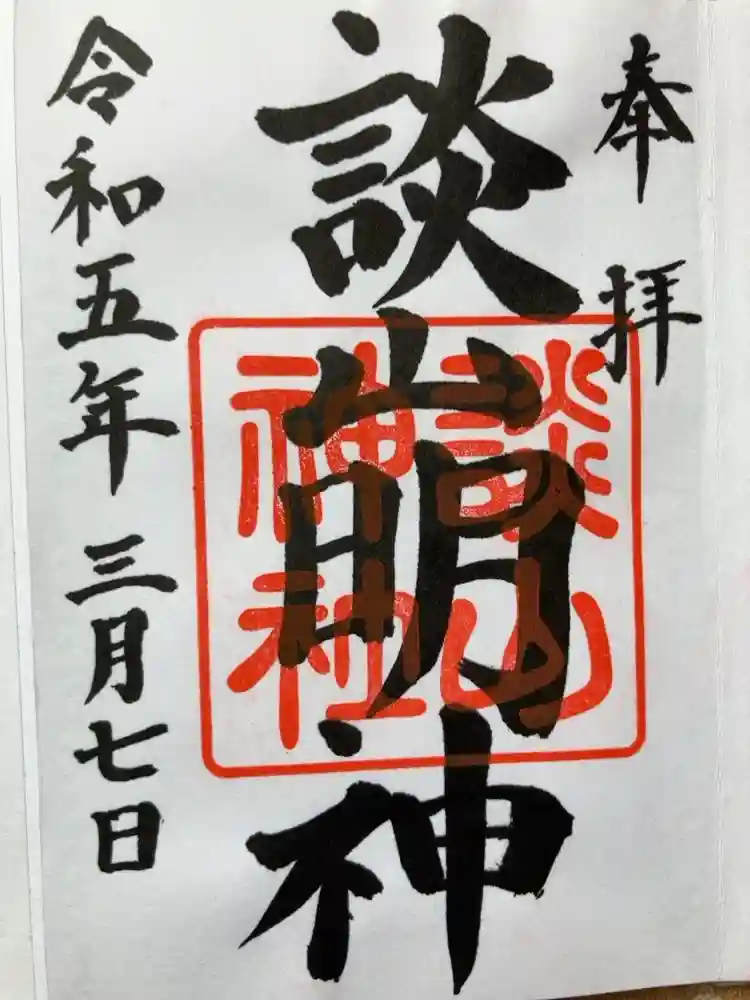 奉拝
談山明神
談山
神社
令和五年三月七日